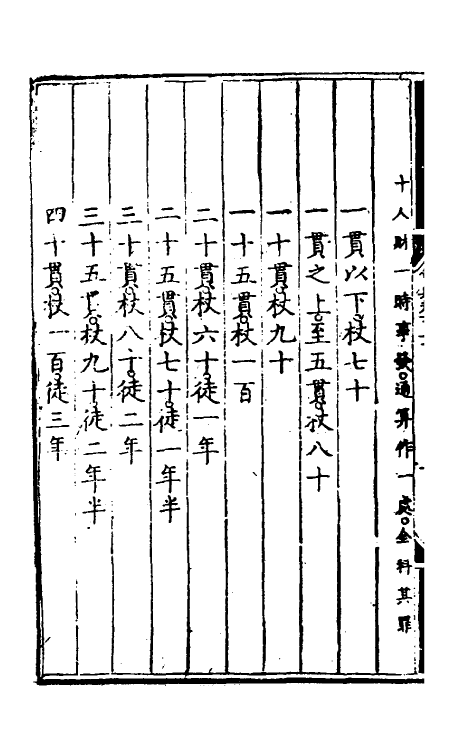 十人財一時事發。通算作一處。全科其罪
一貫以下。杖七十
一貫之上。至五貫。杖八十
一十貫。杖九十
一十五貫。杖一百
二十貫。杖六十。徒一年
二十五貫。杖七十。徒一年半
三十貫。杖八十。徒二年
三十五貫。杖九十。徒二年半
四十貫。杖一百。徒三年